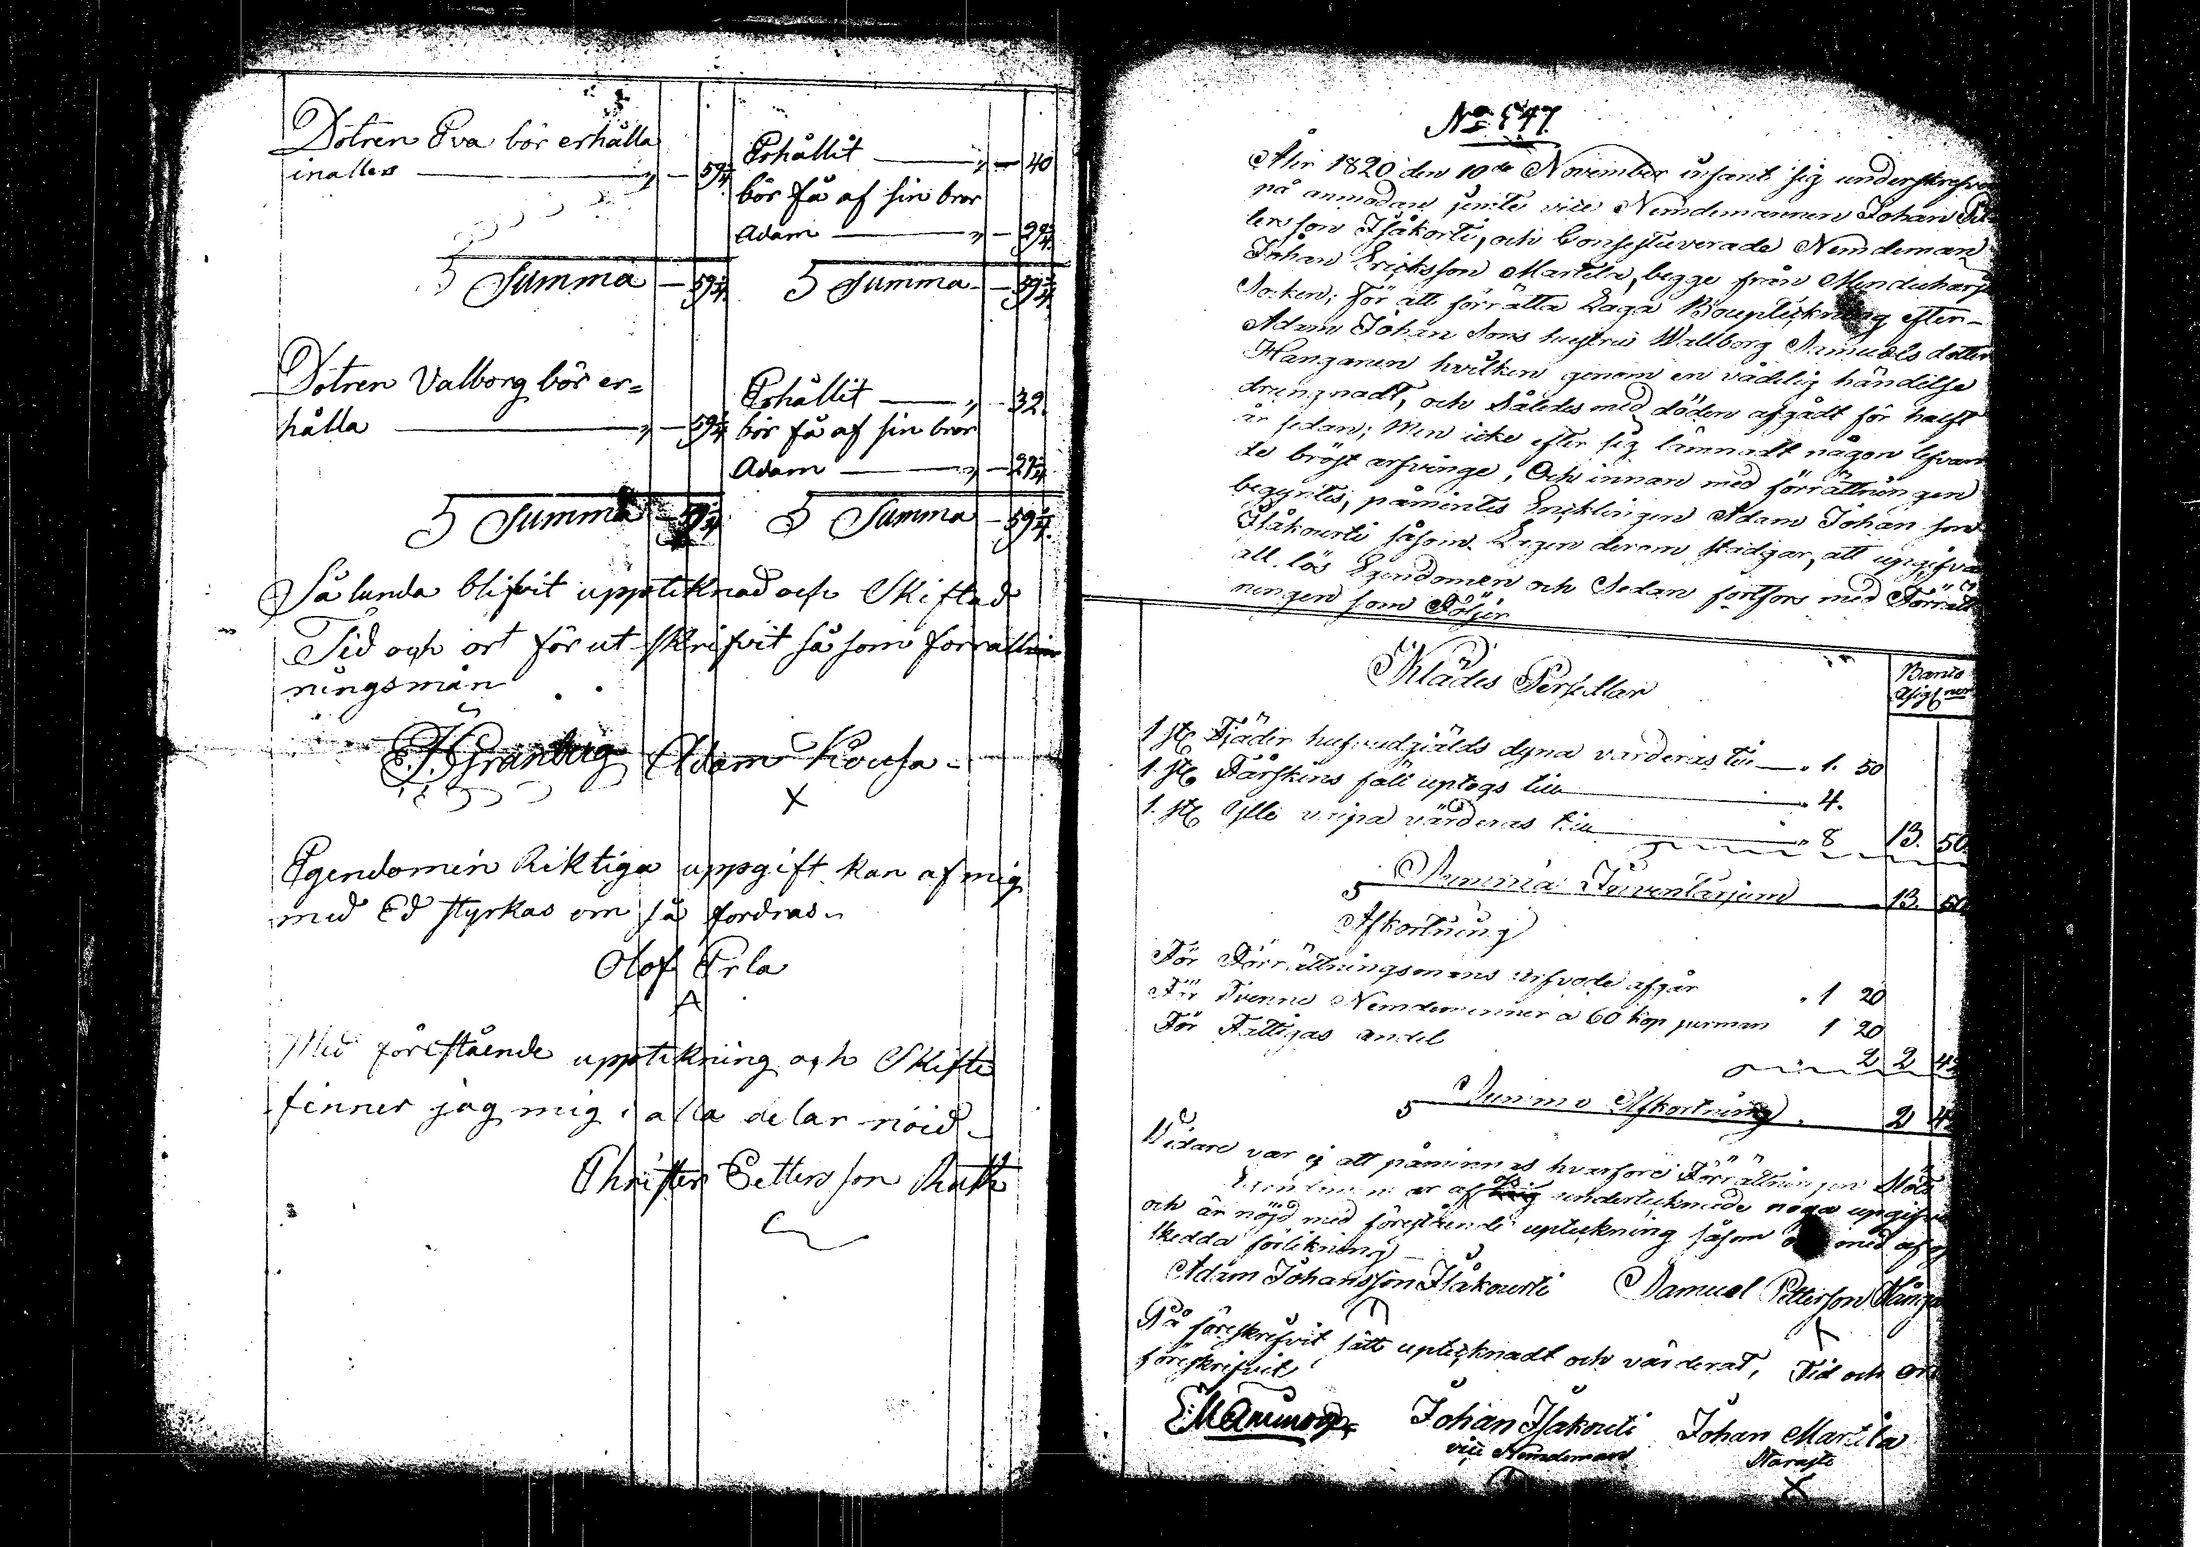 Dotren Eva bör erhålla
inalles — " — 59¼
Erhållit — " — 40
bör få af sin bror
Adam — " —
Summa — 59¼
Summa — 59¼
Dotren Valborg bör er=
hålla — " — 59¼
Erhållit — " — 32.
bör få af sin bror
Adam — " — 27¼
Summa — 59¼
Summa — 59¼
Så lunda blifvit upptiknad och Skiftad
Tid och ort för ut skrifvit så som forrattnin
ningsmän
Granberg Adam Kousa
X
Egendomen Riktiga uppgift kan af mig
med Ed styrkas om så fordras
Olof Erla
Med förestående upptikning och Skifte
finner jag mig i alla delar nöid
Christer Pettersson
No 547.
År 1820 den 10de November infant sig underskrefvo
på anmodan jemte vice Nemdemannen Johan Pet
tersson Isåkorti, och Constituverade Nemdeman
Johan Ericksson Martila, begge från
Socken; för att förrätta Laga Bouptickning efter
Adam Johan Sons hustru Wallborg Samuels dotter
Hanganen hvilken genom en vådelig händelse
drungnadt, och således med döden afgådt för halft
år sedan; Men icke efter sig lämnadt någon lefvan
de bröst arfvinge, Och innan med förrättningen
begyntes, påmintes Encklingen Adam Johan son
Isåkourti såsom Lagen derom stadgar, att uppgifva
all lös Egendomen och Sedan fortfors med Förrätt
ningen som Följer
Klädes Persedlar
Banco
1 st Fjäder hufvudgjälds dyna värderas till — " 1. 50
1. st Fårskins fäll uptogs till — " 4.
1. st Ylle värderas till — " 8 13. 50
Summa Inventarium 13. 50
Afkortning
För Förrättningsmans arfvode afgår " 1 20
För Tvenne Nemdemänner a 60 kop perman 1 20
För Fattigas andel
2 2 42
Summa Afkortning 2 42
Vidare var ej att påminnas hvarföre Förrättningen Slöts
Egendomen är af oss undertecknade noga upgifven
och är nöjd med förestående uptickning såsom med af oss
skedda förlikning
Adam Johansson Isåkourti Samuel Petterson
På föreskrefvit sätt upticknadt och värderat, Tid och ort
föreskrifvit
Johan Isakourti Johan Martila
vice Nemdeman
X